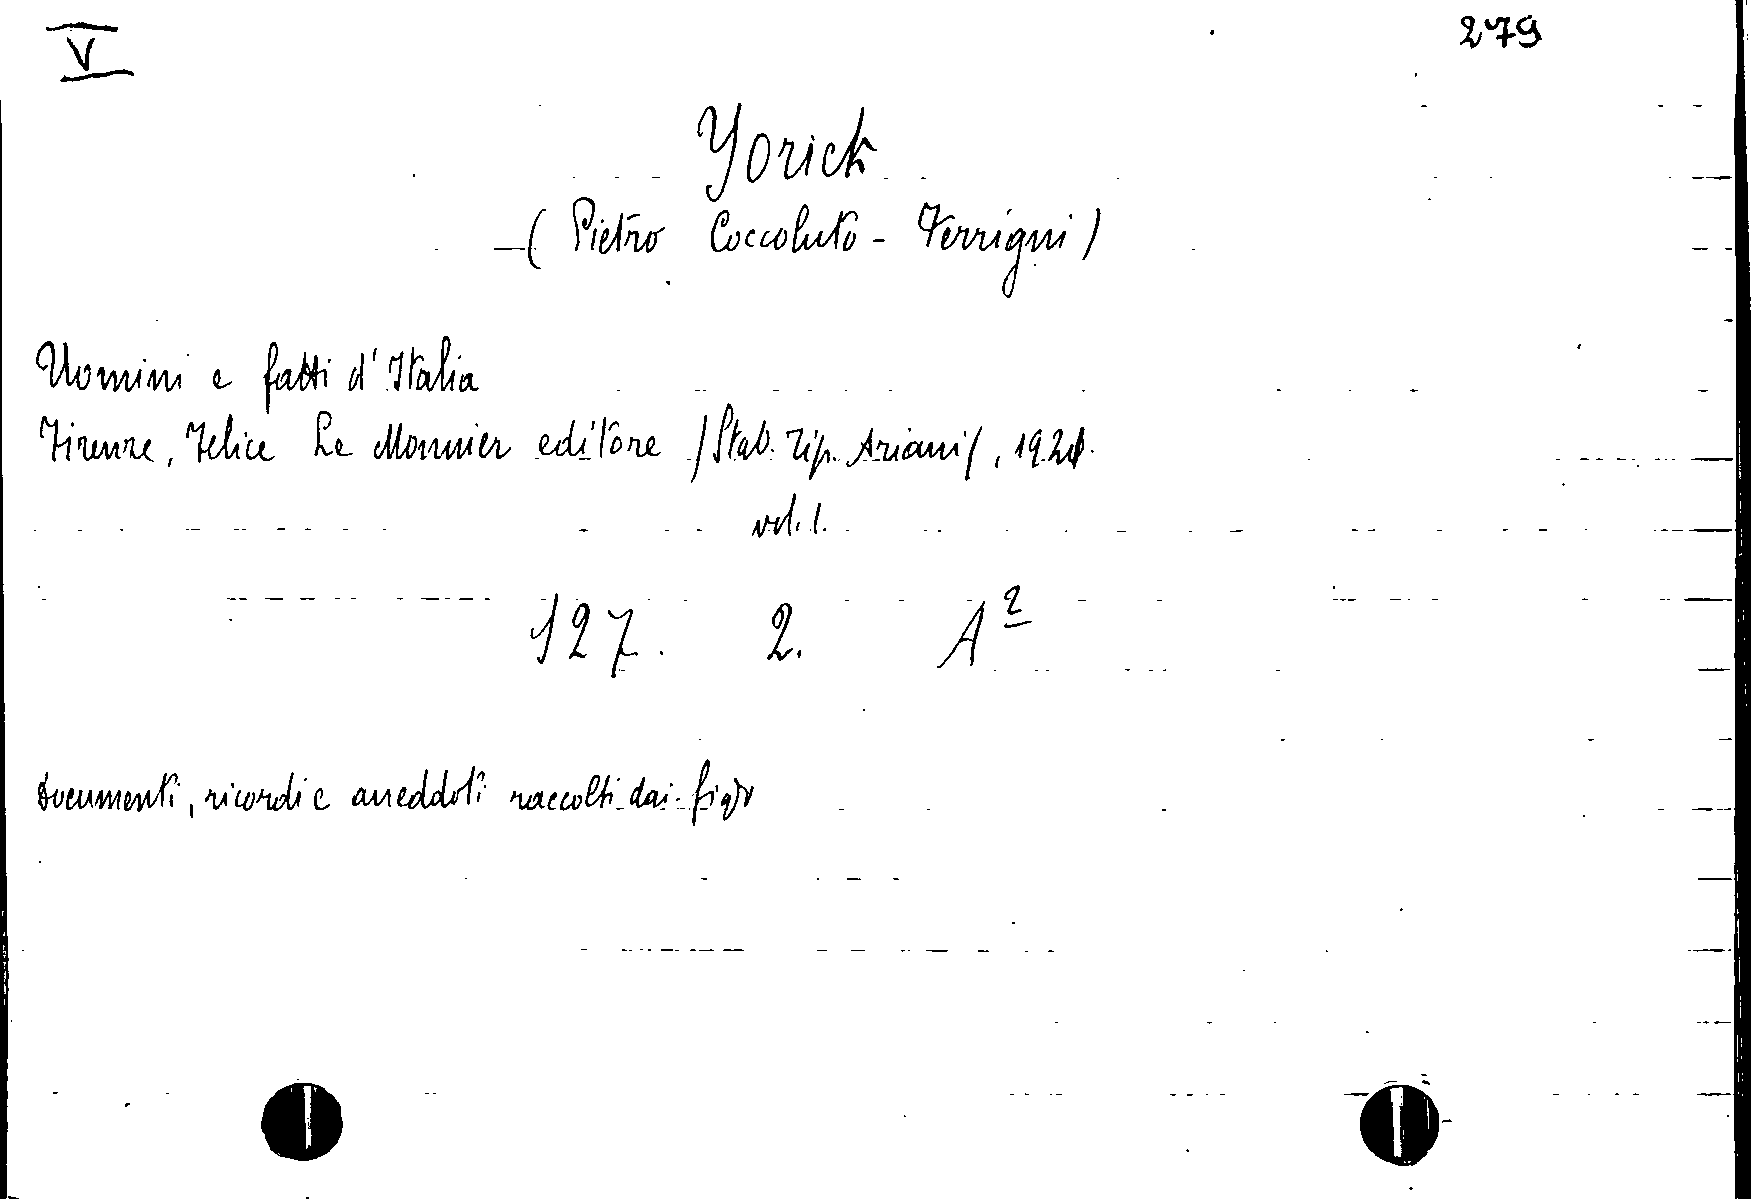 V 279
Yorick
(Pietro Coccoluto - Ferrigni)
Uomini e fatti d'Italia
Firenze, Felice Le Monnier editore /Stab. Tip. Ariani/,
vol. 1.
127. 2. A²
Documenti, ricordi e aneddoti raccolti dai